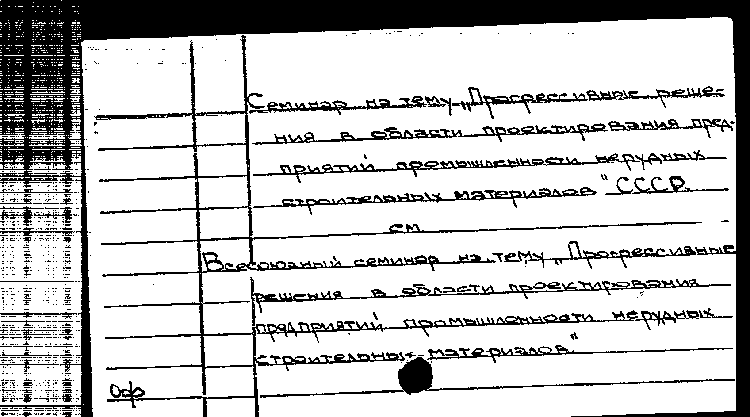 Семинар на тему „Прогрессивные реше-
ния в области проектирования пред-
приятий промышленности нерудных
строительных материалов" СССР.
см.
Всесоюзный семинар на тему „Прогрессивные
решения в области проектирования
предприятий промышленности нерудных
строительных материалов"
Офр